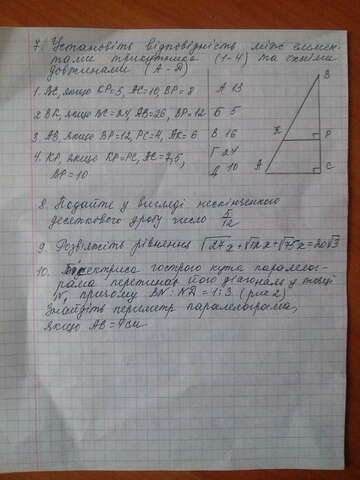 7. Установіть відповідність між елемен-
тами трикутника (1-4) та їхніми
довжинами (А - Д)
1. BC, якщо KP=5, AC=10, BP=8
А 13
2. BK, якщо BC=24, AB=26, BP=12
Б 5
3. AB, якщо BP=12, PC=4, AK=6
В 16
4. KP, якщо KP=PC, AC=7,5,
Г 24
BP=10
Д 10
B
K
P
A
C
8. Подайте у вигляді нескінченного
десяткового дробу число 5/12
9. Розв'яжіть рівняння √27x+√12x+√75x=20√3
10. Бісектриса гострого кута паралелог-
рама перетинає його діагональ у точці
N, причому BN:ND=1:3. (рис 2)
Знайдіть периметр паралелограма,
якщо AB=4см.